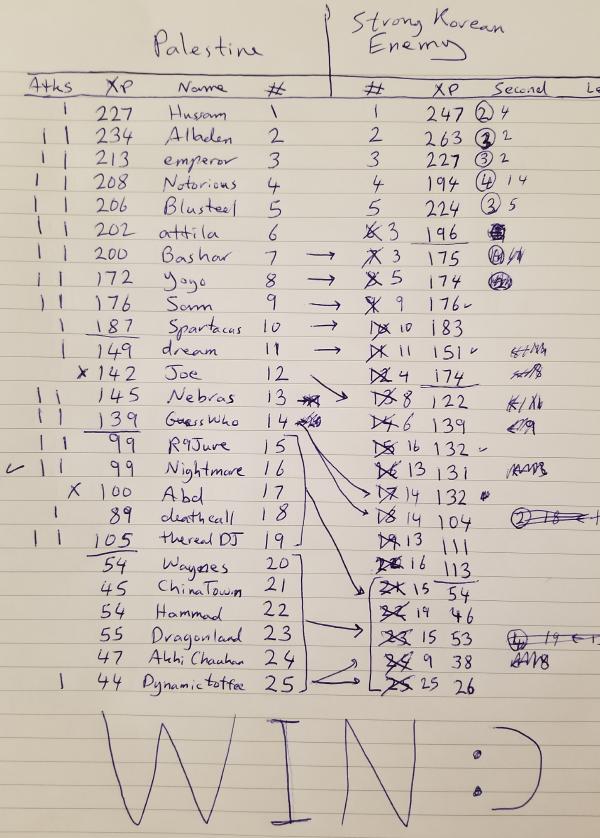 Palestine Strong Korean
Enemy
Atks XP Name # # XP Second
| 227 Hussam 1 1 247 ② 4
|| 234 Alladen 2 2 263 2
|| 213 emperor 3 3 227 ③ 2
|| 208 Notorious 4 4 194 ④ 14
|| 206 Blusteel 5 5 224 ③ 5
|| 202 attila 6 6 3 196
|| 200 Bashar 7 → 7 3 175
|| 172 yogo 8 → 8 5 174
|| 176 Sam 9 → 9 9 176 ✓
| 187 Spartacus 10 → 10 10 183
| 149 dream 11 → 11 11 151 ✓
x 142 Joe 12 12 4 174
|| 145 Nebras 13 13 8 122
|| 139 GuessWho 14 14 6 139
|| 99 R9Juve 15 15 16 132 ✓
✓ || 99 Nightmare 16 16 13 131
x 100 Abd 17 17 14 132
| 89 deathcall 18 18 14 104
|| 105 thereal DJ 19 19 13 111
54 20 16 113
45 ChinaTown 21 21 15 54
54 Hammad 22 22 19 46
55 Dragonland 23 23 15 53
47 Akhi Chauhan 24 24 9 38
| 44 Dynamictoffee 25 25 25 26
WIN :)